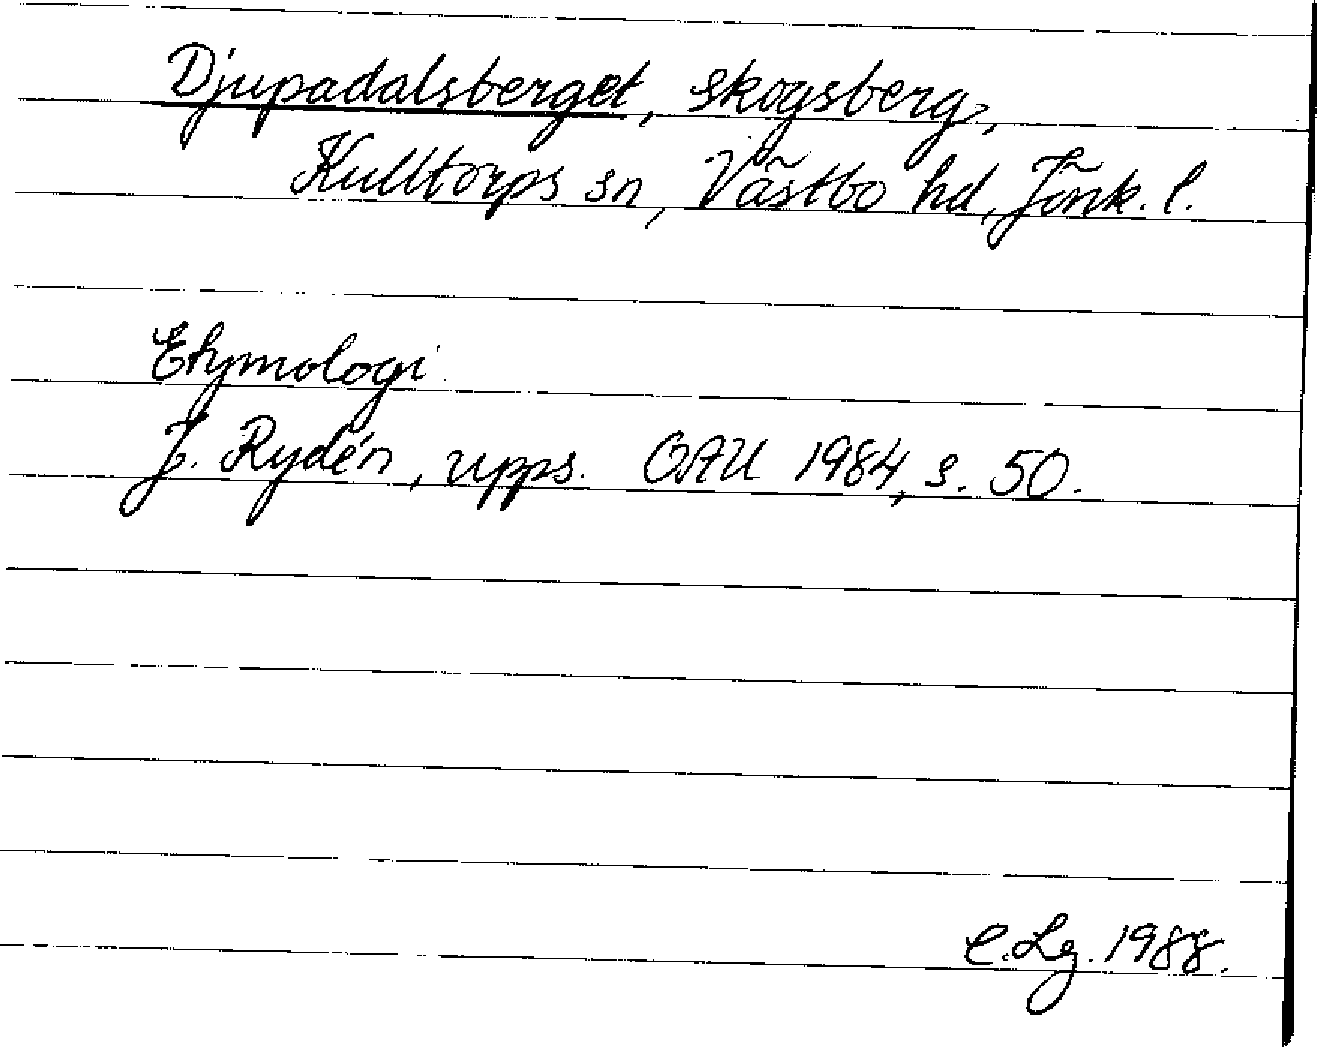 Djupadalsberget, skogsberg,
Kulltorps sn, Västbo hd, Jönk. l.
Etymologi
J. Rydén, upps. OAU 1984, s. 50.
C.Lg. 1988.